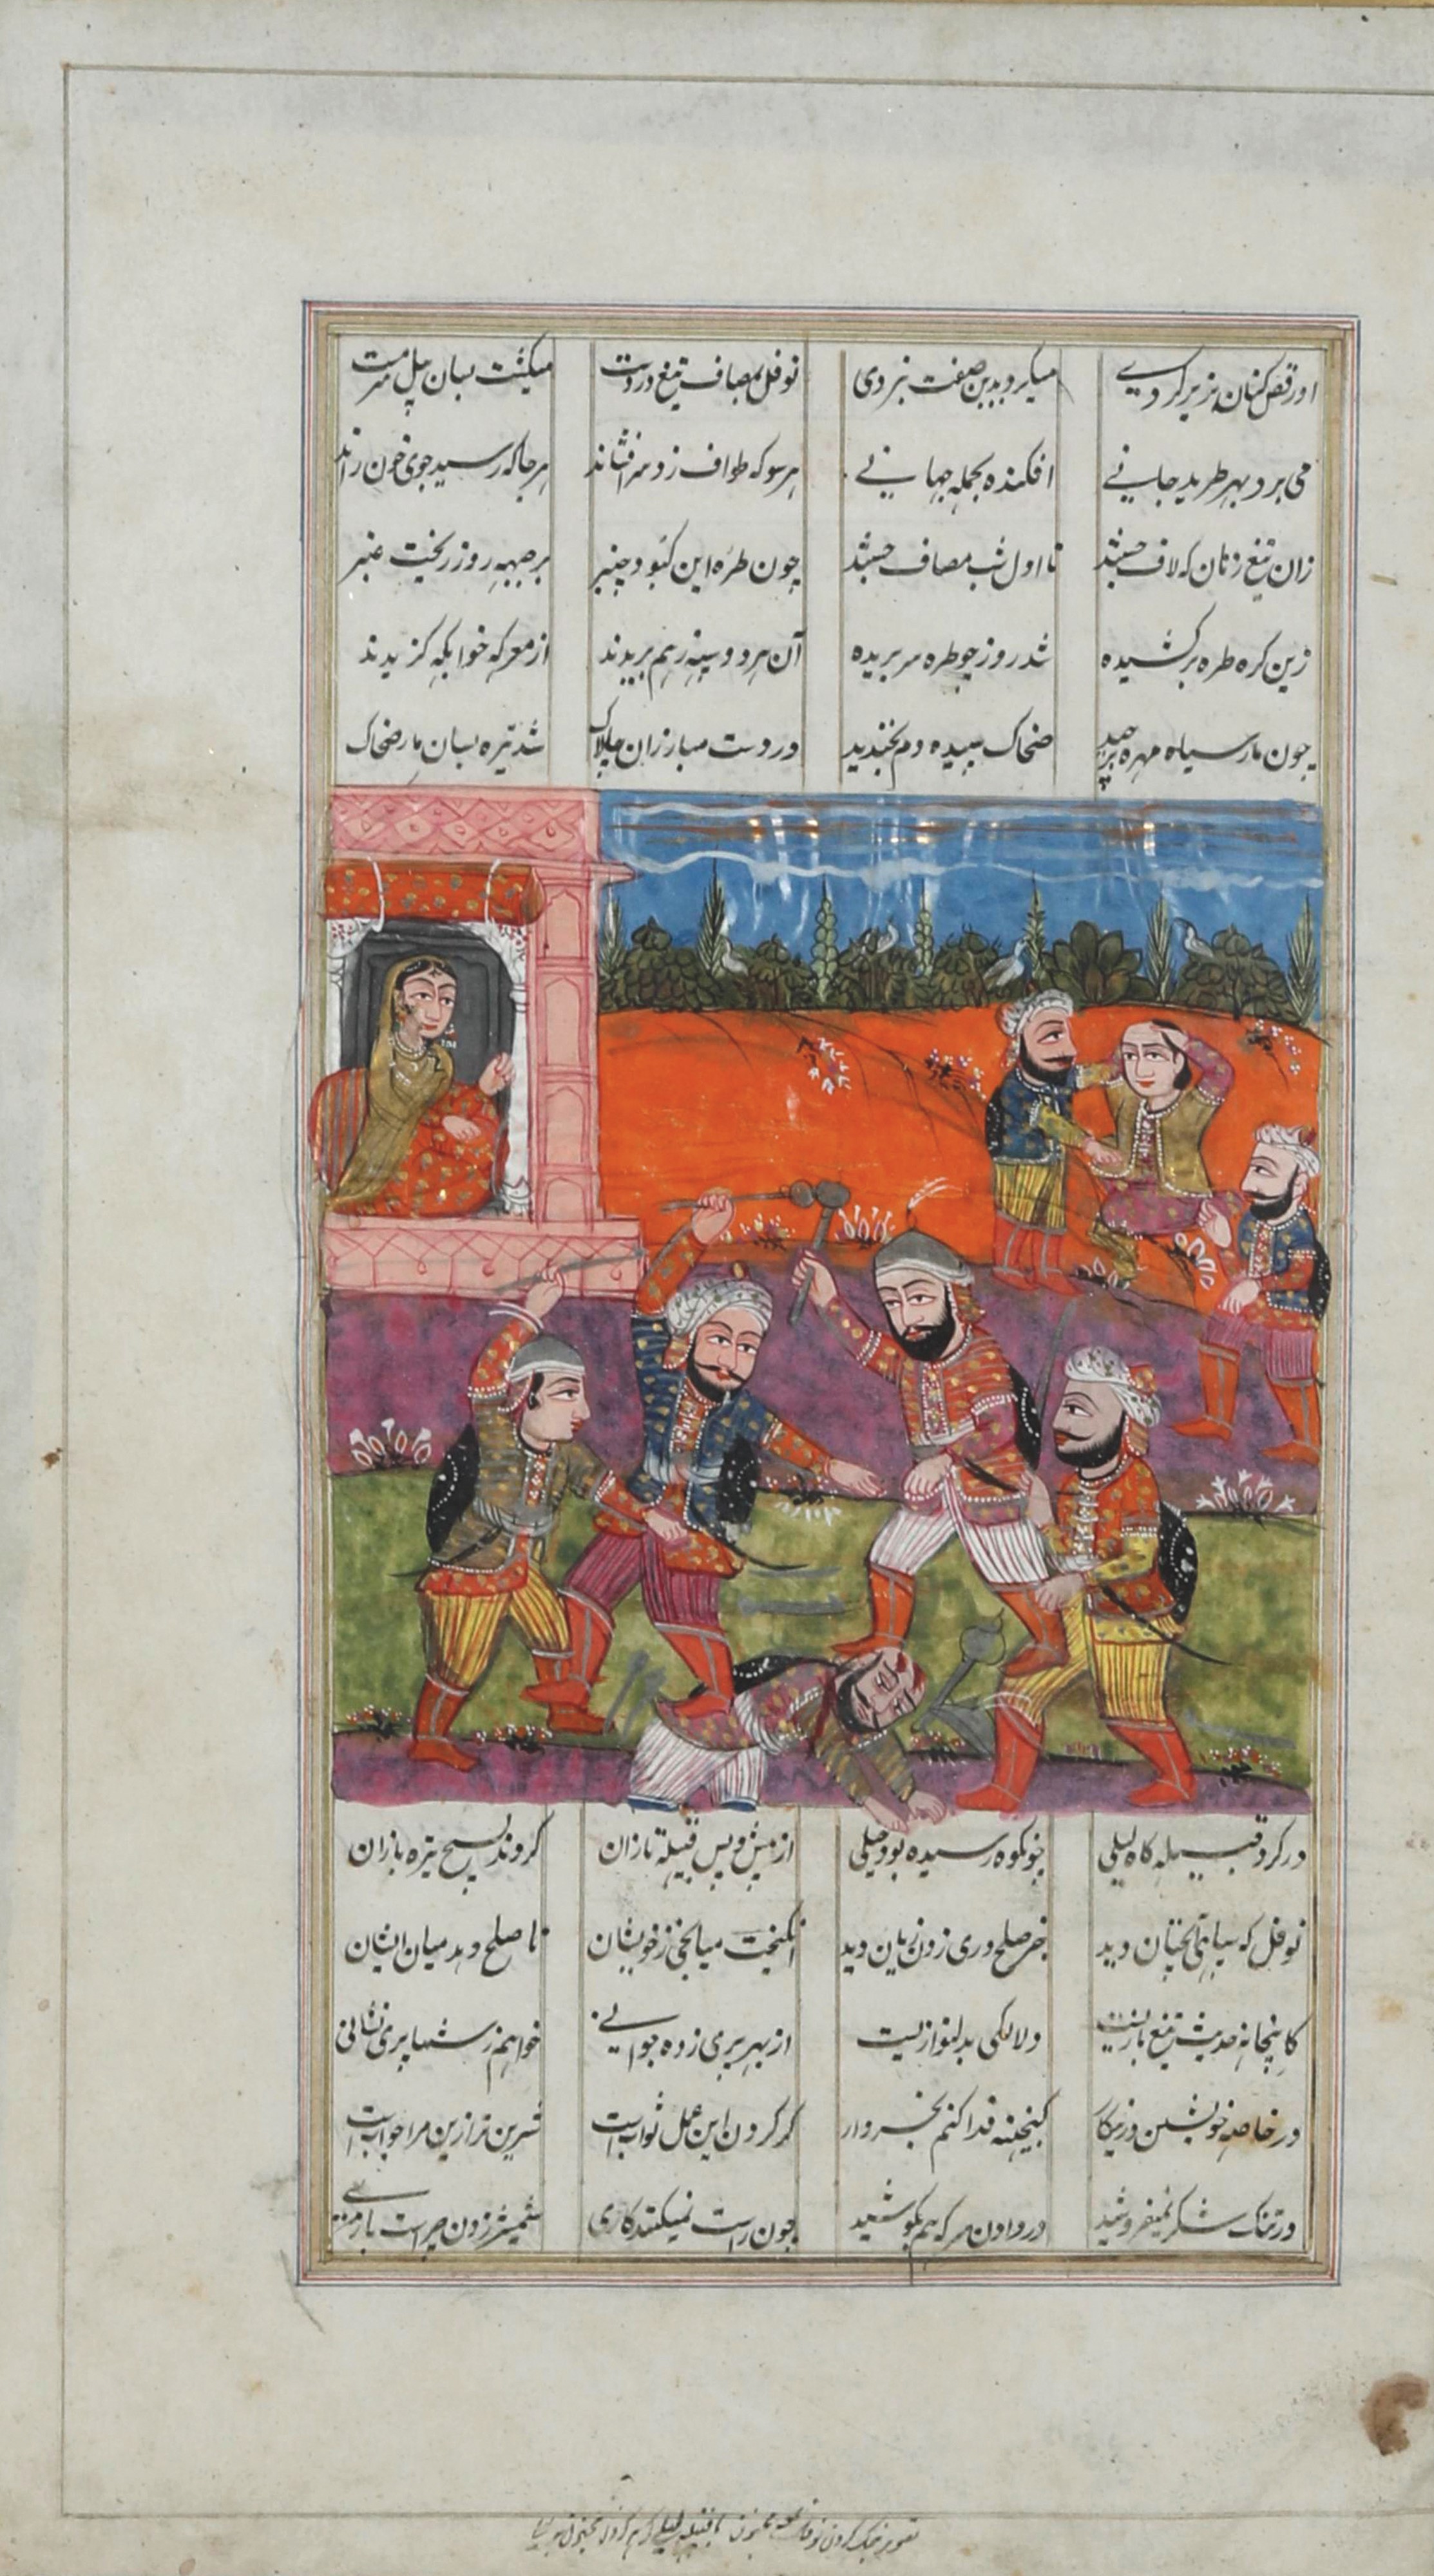 او رقص کنان بزیر گردی میکرد بدین صفت نبردی نوفل بمصاف تیغ در دست میکشت بسان پیل سرمست
می برد بهر طرید جانی افکنده بحمله جهانی هر سو که طواف زد سر افشاند هر جا که رسید جوی خون راند
زان تیغ زنان که لاف جستند تا اول شب مصاف جستند چون طره این کبود چنبر بر جبهه روز ریخت عنبر
زین کره طره برکشیده شد روز چو طره سر بریده آن هر دو سپه ز هم بریدند از معرکه خوابگه گزیدند
چون مار سیاه مهره برچید ضحاک سپیده دم بخندید در دست مبارزان چالاک شد نیزه بسان مار ضحاک
در گرد قبیله گاه لیلی چون کوه رسیده بود خیلی از پیش و پس قبیله تازان کردند بسیج نیزه بازان
نوفل که سپاهی آنچنان دید جز صلح دری زدن زیان دید انگیخت میانجی ز خویشان تا صلح دهد میان ایشان
کاینجا نه حدیث تیغ بازیست دلالکی بدلنوازیست از بهر پری زده جوانی خواهم ز شما پری نشانی
در خاصه خویشتن درین کار گنجینه فدا کنم بخروار گر کردن این عمل ثوابست شیرین تر ازین مرا جوابست
ور تنگ شکر نمیفروشید در دادن سرکه هم مکوشید چون راست نمیکند کاری شمشیر زدن چراست باری
تصویر جنگ کردن نوفل مجنون با قبیله لیلی